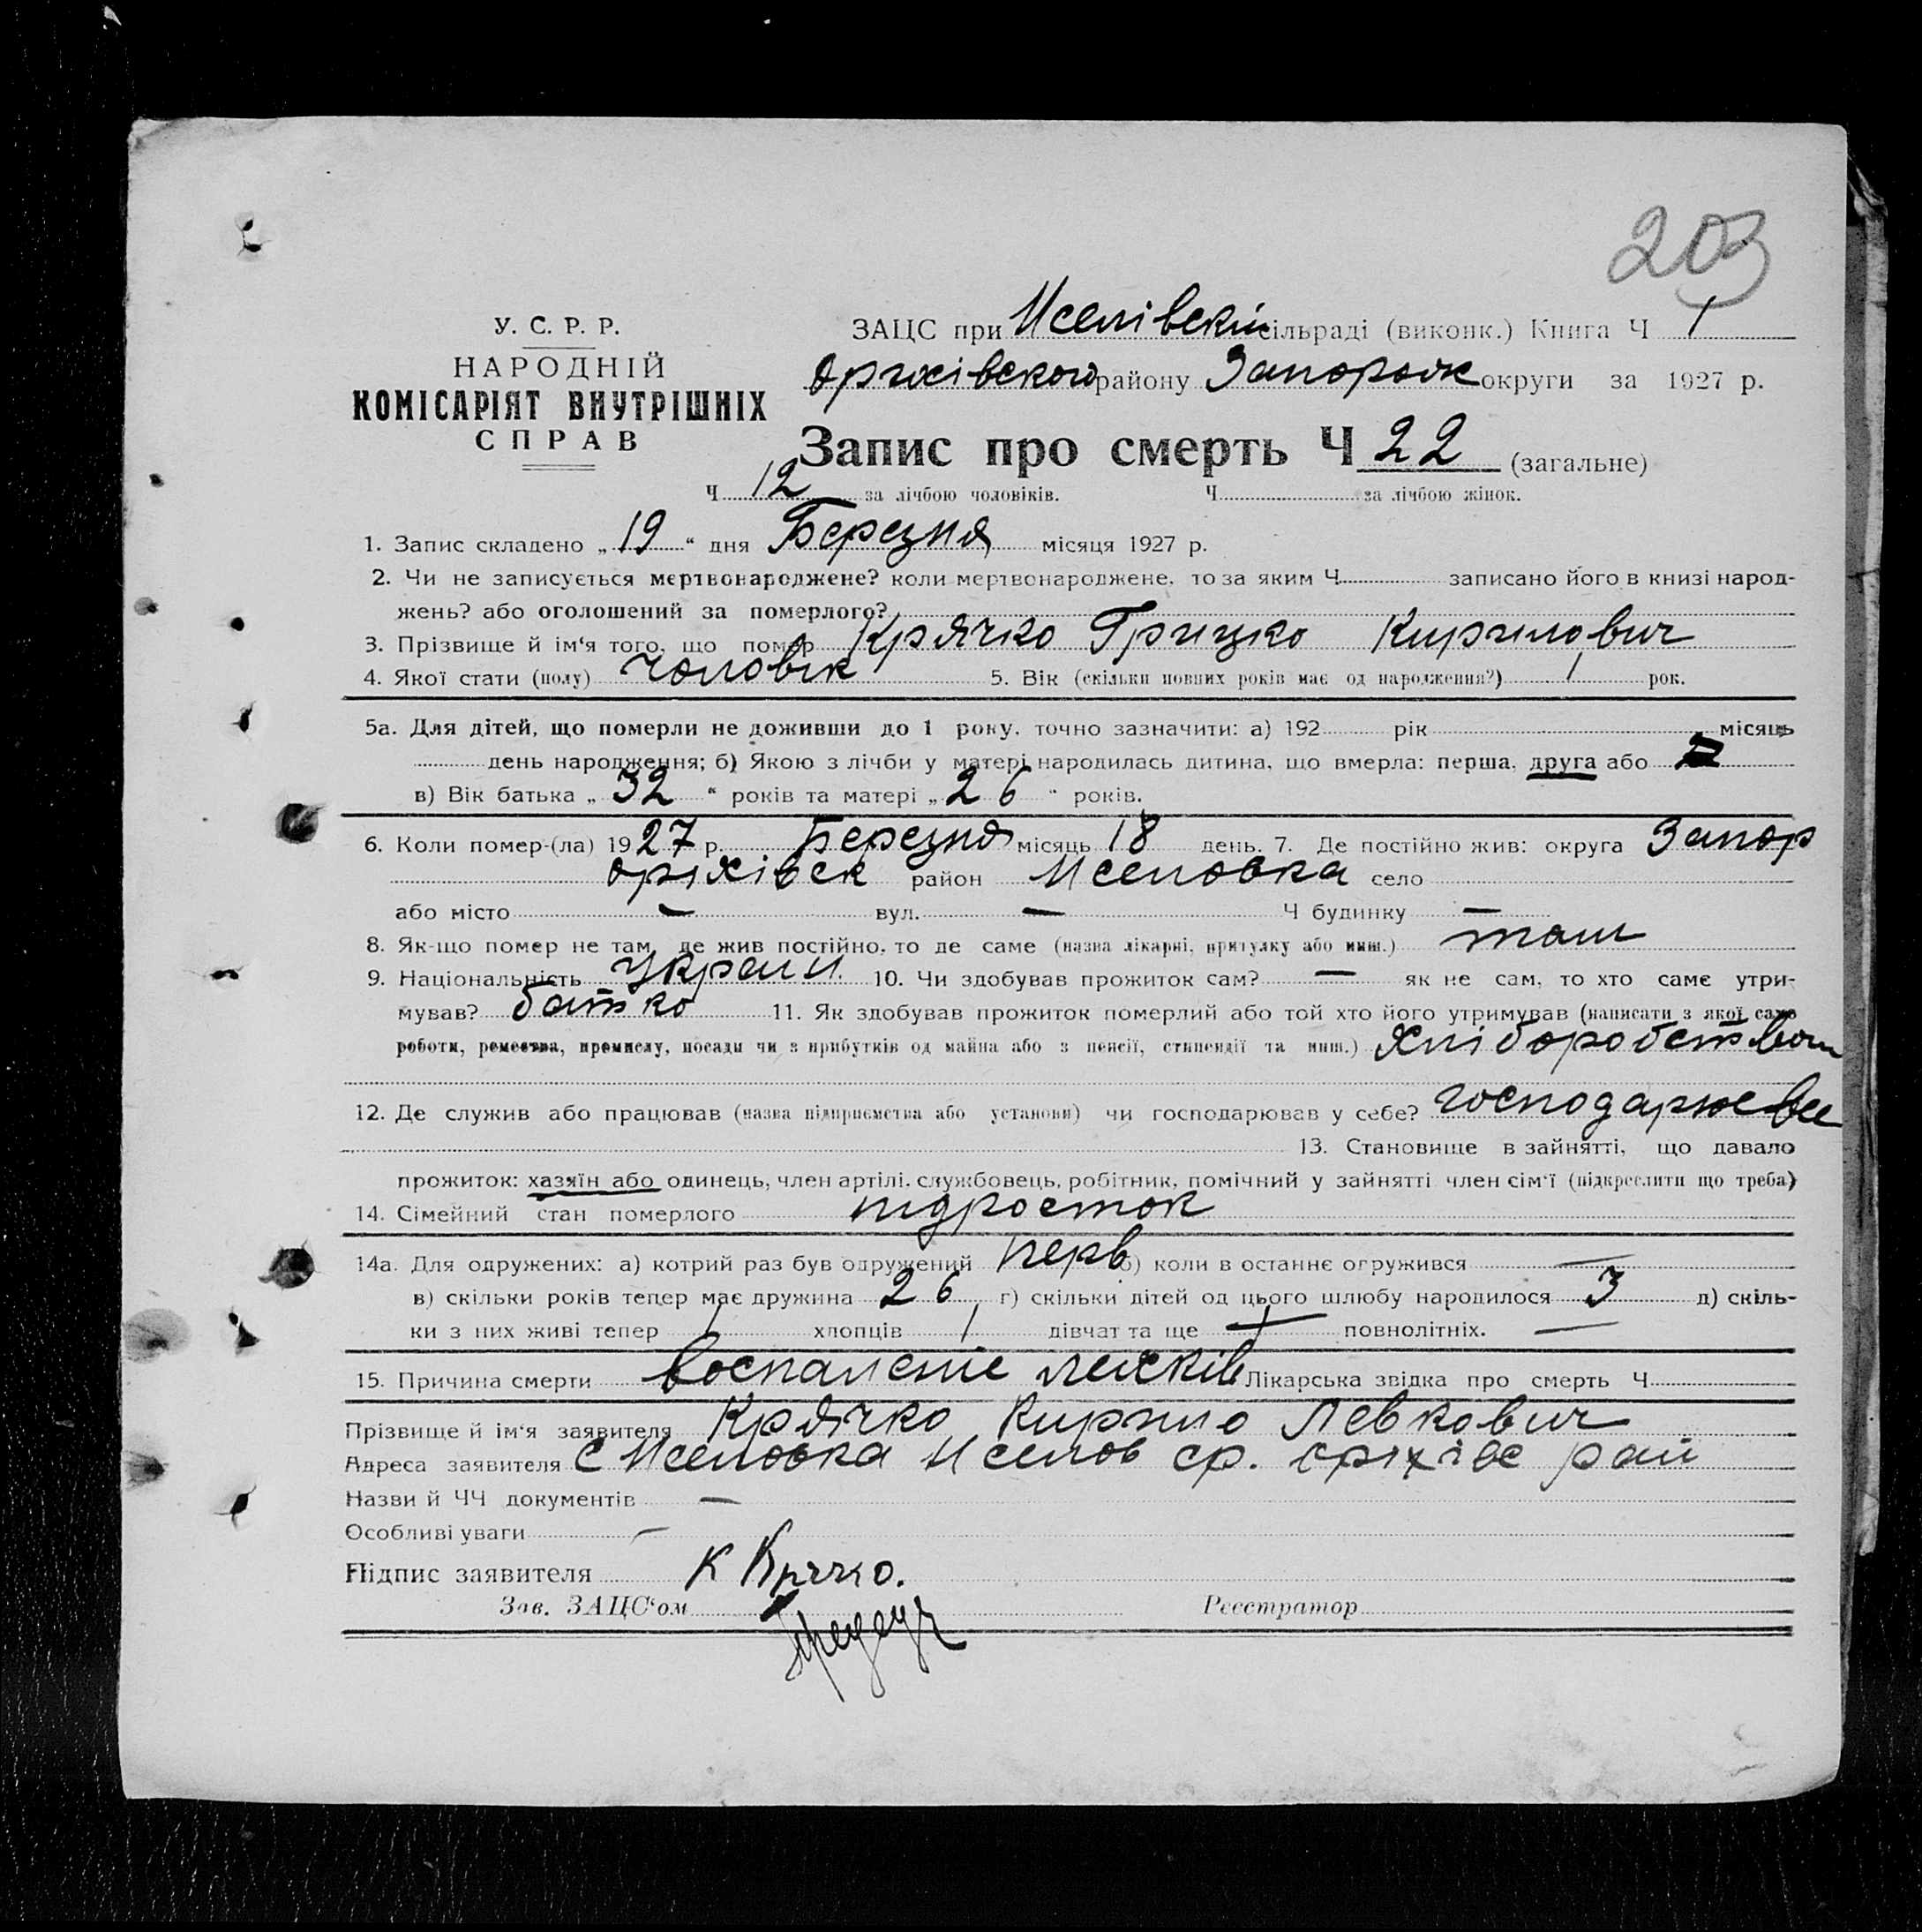 203
У. С. Р. Р.
НАРОДНІЙ
КОМІСАРІЯТ ВНУТРІШНІХ
СПРАВ
ЗАЦС при сільраді (виконк.) Книга Ч 1
Оріхівского району Запорож округи за 1927 р.
Запис про смерть Ч 22 (загальне)
Ч 12 за лічбою чоловіків. Ч за лічбою жінок.
1. Запис складено „ 19 “ дня Березня місяця 1927 р.
2. Чи не записується мертвонароджене? коли мертвонароджене, то за яким Ч. записано його в книзі народ-
жень? або оголошений за померлого?
3. Прізвище й ім‘я того, що помер Крячко Грицко Кирилович
4. Якої стати (полу) чоловік 5. Вік (скільки повних років має од народження?) 1 рок.
5а. Для дітей, що померли не доживши до 1 року, точно зазначити: а) 192 рік місяць
день народження; б) Якою з лічби у матері народилась дитина, що вмерла: перша, друга або
в) Вік батька „ 32 “ років та матері „ 26 “ років.
6. Коли помер-(ла) 1927 р. Березня місяць 18 день. 7. Де постійно жив: округа Запор
оріхівск район село
або місто — вул. — Ч будинку —
8. Як-що помер не там, де жив постійно, то де саме (назва лікарні, притулку або инш.) там
9. Національність украин. 10. Чи здобував прожиток сам? — як не сам, то хто саме утри-
мував? батько 11. Як здобував прожиток померлий або той хто його утримував (написати з якої саме
роботи, ремества, промислу, посади чи з прибутків од майна або з пенсії, стипендії та инш.) хліборобством
12. Де служив або працював (назва підприємства або установи) чи господарював у себе?
13. Становище в зайнятті, що давало
прожиток: хазяїн або одинець, член артілі, службовець, робітник, помічний у зайнятті член сім‘ї (підкреслити що треба)
14. Сімейний стан померлого підросток
14а. Для одружених: а) котрий раз був одружений перв б) коли в останнє огружився —
в) скільки років тепер має дружина 26 г) скільки дітей од цього шлюбу народилося 3 д) скіль-
ки з них живі тепер 1 хлопців 1 дівчат та ще повнолітніх. —
15. Причина смерти воспаление лехків Лікарська звідка про смерть Ч
Прізвище й ім‘я заявителя Крячко Кирило Левкович
Адреса заявителя с ср. оріхівс рай
Назви й ЧЧ документів —
Особливі уваги —
Підпис заявителя К Крячко.
Зав. ЗАЦС‘ом Реєстратор